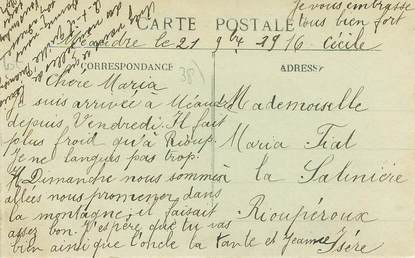 Je vous embrasse
tous bien fort
Cécile
CARTE POSTALE
Méaudre le 21 9bre 1916
CORRESPONDANCE
ADRESSE
Chère Maria
Je suis arrivée à Méaudre
depuis Vendredi. Il fait
plus froid qu'a Rioup.
Je ne languis pas trop.
Dimanche nous sommes
allés nous promener dans
la montagne, il faisait
assez bon. J'espère que tu vas
bien ainsi que l'oncle la tante et Jeanne
Mademoiselle
Maria Fiat
à la Salinière
Rioupéroux
Isère